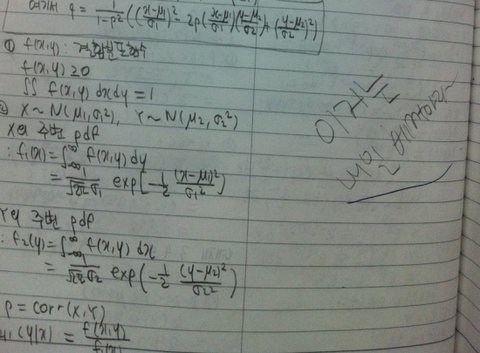 여기서 q = 1/(1-ρ²) ((x-μ₁/σ₁)² - 2ρ(x-μ₁/σ₁)(y-μ₂/σ₂) + (y-μ₂/σ₂)²)
① f(x,y) : 결합분포함수
f(x,y) ≥ 0
∫∫ f(x,y) dxdy = 1
② X ~ N(μ₁, σ₁²), Y ~ N(μ₂, σ₂²)
X의 주변 pdf
: f₁(x) = ∫_{-∞}^{∞} f(x,y) dy
= 1/(√2π σ₁) exp[-1/2 (x-μ₁)²/σ₁²)
Y의 주변 pdf
: f₂(y) = ∫_{-∞}^{∞} f(x,y) dx
= 1/(√2π σ₂) exp(-1/2 (y-μ₂)²/σ₂²)
ρ = corr(X,Y)
(y|x) = f(x,y)/f₁(x)
이거는
내일